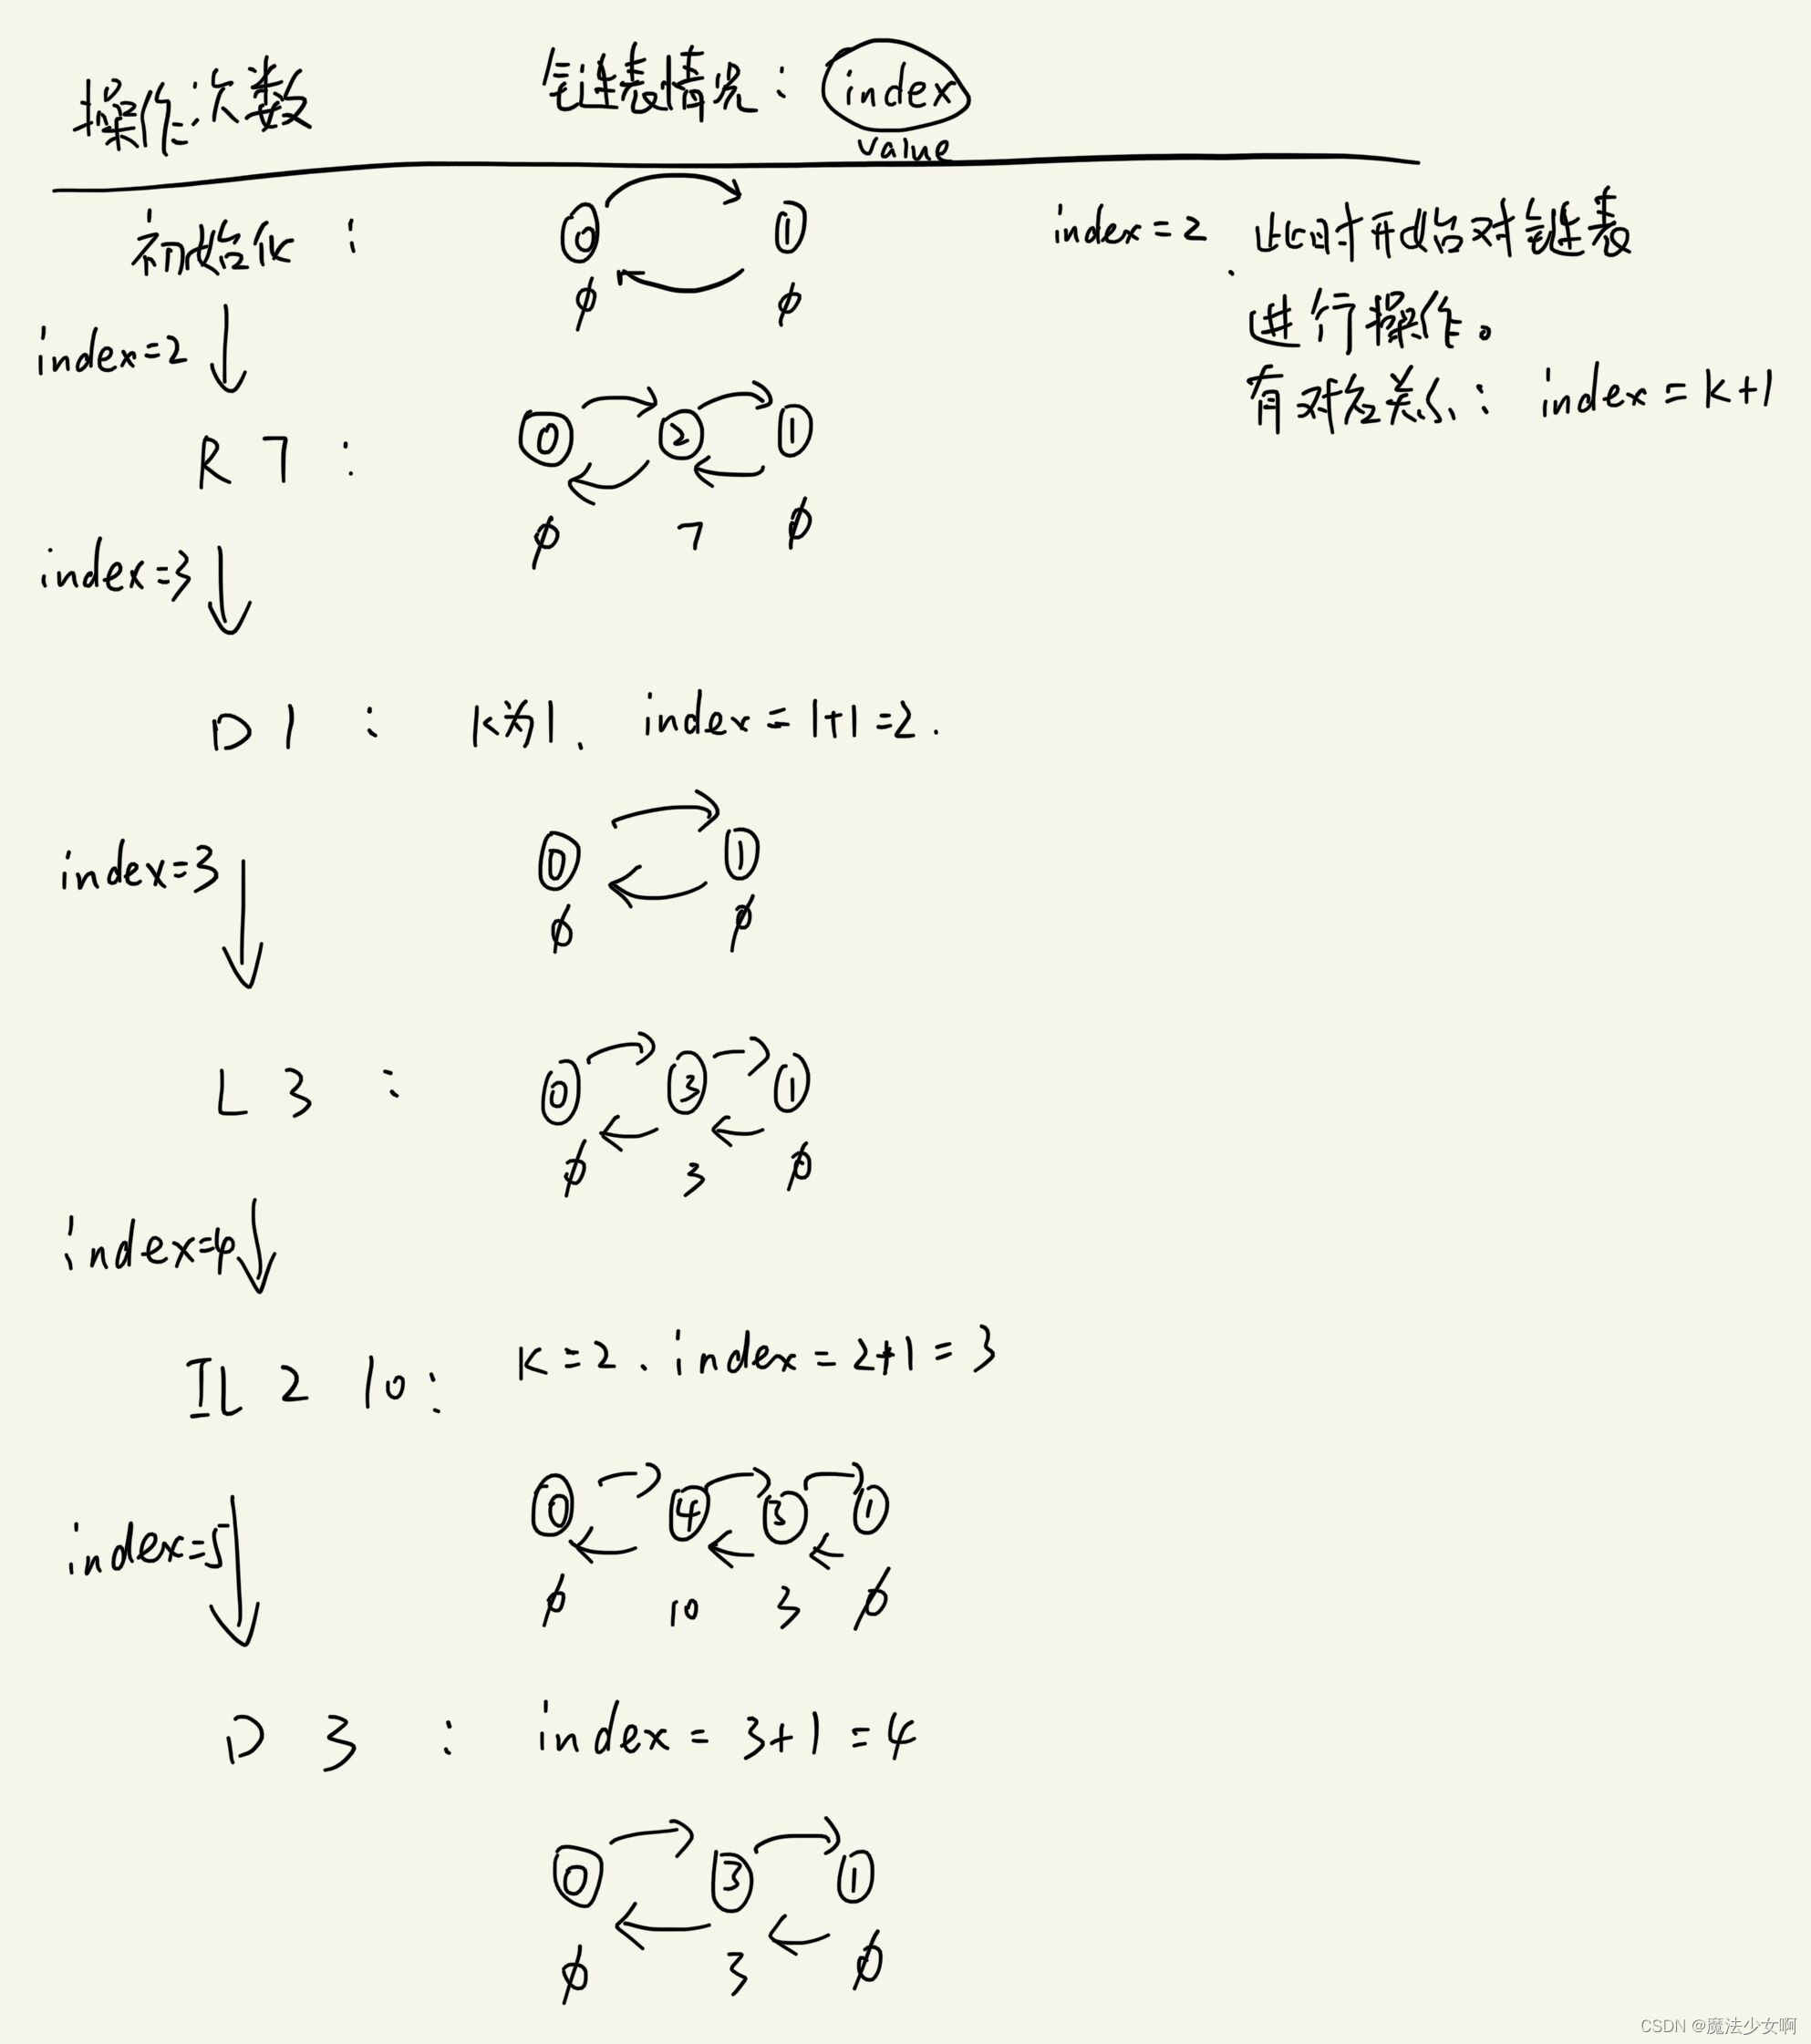 操作次数
链表情况：index
value
初始化：
0 1
∅ ∅
index=2 此时开始对链表
进行操作。
有对应关系：index=k+1
index=2
R 7：
0 2 1
∅ 7 ∅
index=3
D 1： k为1. index=1+1=2.
index=3
0 1
∅ ∅
L 3：
0 3 1
∅ 3 ∅
index=4
IL 2 10： k=2、index=2+1=3
index=5
0 4 3 1
∅ 10 3 ∅
D 3： index=3+1=4
0 3 1
∅ 3 ∅
CSDN @魔法少女啊